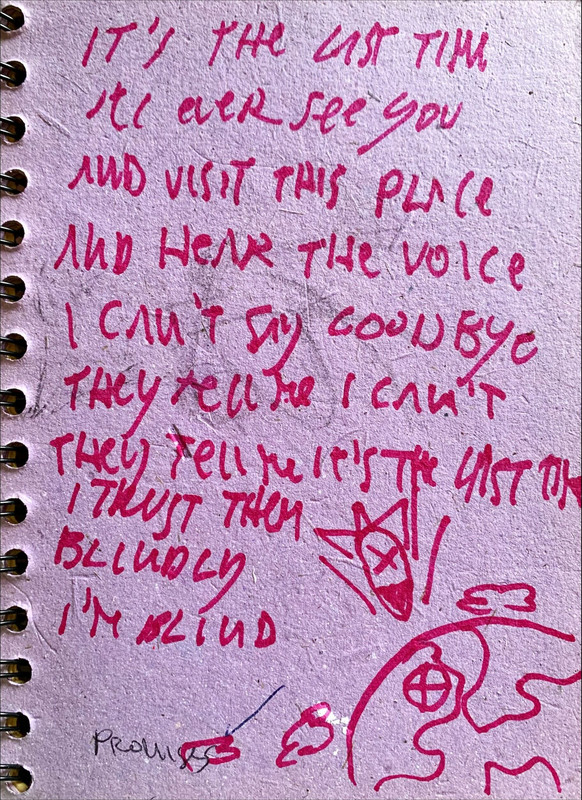 IT'S THE LAST TIME
I'LL EVER SEE YOU
AND VISIT THIS PLACE
AND HEAR THE VOICE
I CAN'T SAY GOODBYE
THEY TELL ME I CAN'T
THEY TELL ME IT'S THE LAST TIME
I TRUST THEM
BLINDLY
I'M BLIND
PROMISES